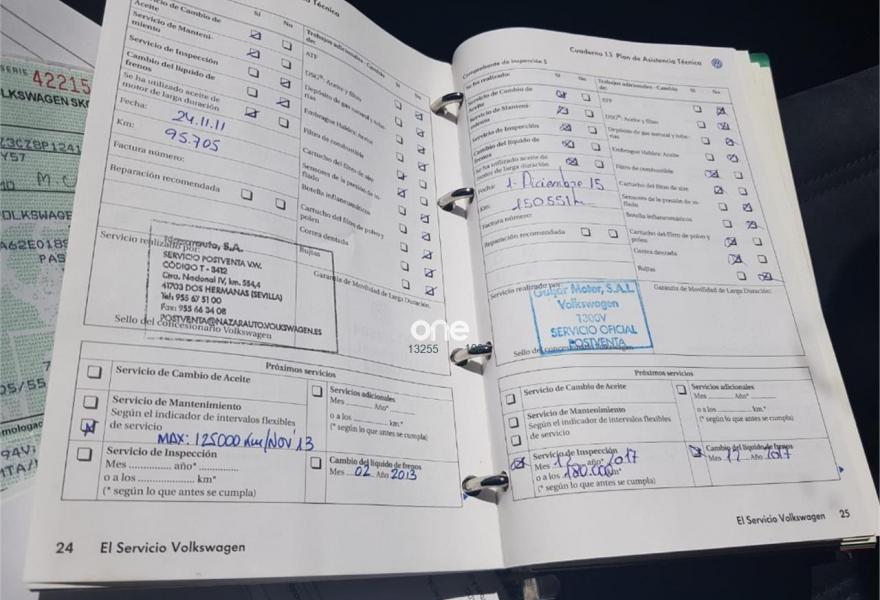 Técnica
Sí No
Servicio de Cambio de
Aceite
Servicio de Manteni-
miento
Servicio de Inspección
Cambio del líquido de
frenos
Se ha utilizado aceite de
motor de larga duración
Fecha: 24.11.11
Km: 95.705
Factura número:
Reparación recomendada
Trabajos adicionales - Cambio
de:
Sí No
ATF
DSG®: Aceite y filtro
Depósito de gas natural y tube-
rías
Embrague Haldex: Aceite
Filtro de combustible
Cartucho del filtro de aire
Sensores de la presión de in-
flado
Botella inflaneumáticos
Cartucho del filtro de polvo y
polen
Correa dentada
Bujías
Garantía de Movilidad de Larga Duración:
Servicio realizado por:
Nazarauto, S.A.
SERVICIO POSTVENTA V.W.
CÓDIGO T - 3412
Ctra. Nacional IV, km. 554,4
41703 DOS HERMANAS (SEVILLA)
Tel: 955 67 51 00
Fax: 955 66 34 08
POSTVENTA@NAZARAUTO.VOLKSWAGEN.ES
Sello del concesionario Volkswagen
Próximos servicios
Servicio de Cambio de Aceite
Servicio de Mantenimiento
Según el indicador de intervalos flexibles
de servicio
MAX: 125000 Km/Nov 13
Servicio de Inspección
Mes año*
o a los km*
(* según lo que antes se cumpla)
Servicios adicionales
Mes Año*
o a los km*
(* según lo que antes se cumpla)
Cambio del líquido de frenos
Mes 02 Año 2013
24 El Servicio Volkswagen
Cuaderno 1.1 Plan de Asistencia Técnica
Comprobante de inspección 5
Se ha realizado: Sí No
Servicio de Cambio de
Aceite
Servicio de Manteni-
miento
Servicio de Inspección
Cambio del líquido de
frenos
Se ha utilizado aceite de
motor de larga duración
Fecha: 1-Diciembre 15
Km: 150551km
Factura número:
Reparación recomendada
Trabajos adicionales - Cambio
de: Sí No
ATF
DSG®: Aceite y filtro
Depósito de gas natural y tube-
rías
Embrague Haldex: Aceite
Filtro de combustible
Cartucho del filtro de aire
Sensores de la presión de in-
flado
Botella inflaneumáticos
Cartucho del filtro de polvo y
polen
Correa dentada
Bujías
Servicio realizado por:
Garantía de Movilidad de Larga Duración:
Motor, S.A.L
Volkswagen
SERVICIO OFICIAL
POSTVENTA
Sello del concesionario Volkswagen
Próximos servicios
Servicio de Cambio de Aceite
Servicio de Mantenimiento
Según el indicador de intervalos flexibles
de servicio
Servicio de Inspección
Mes 12 año* 2017
o a los 180.000 km*
(* según lo que antes se cumpla)
Servicios adicionales
Mes Año*
o a los km*
(* según lo que antes se cumpla)
Cambio del líquido de frenos
Mes 12 Año 2017
El Servicio Volkswagen 25
SERIE 42215
LKSWAGEN SK
Y57
M.C
OLKSWAGE
A62E018
PAS
05/55
one
13255